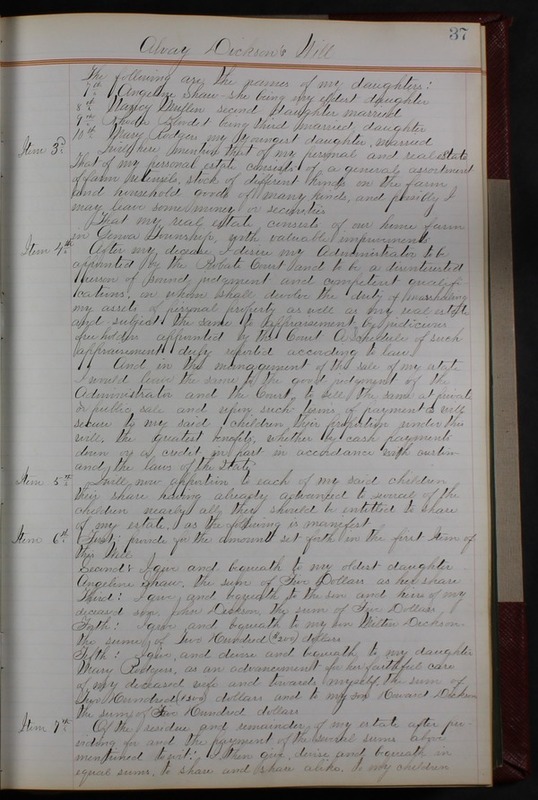 37
Alvay Dickson's Will
The following are the names of my daughters:
7th Angeline Shaw - she being my oldest daughter
8th Nancy Mullen second daughter married
9th being third married daughter
10th Mary Rodgers my youngest daughter married
Item 3d I will here mention that of my personal and real estate
That of my personal estate consists of a general assortment
of farm utensils, stock of different kinds on the farm
and household goods of many kinds, and possibly I
may leave some money or securities
That my real estate consists of our home farm
in Township, with valuable improvements
Item 4th After my decease I desire my Administrator to be
appointed by the Probate Court and to be a disinterested
person of sound judgment and competent qualifi-
cations, on whom shall devolve the duty of marshaling
my assets of personal property as well as my real estate
and subject the same to appraisement by judicious
freeholders appointed by the Court A schedule of such
appraisement duly reported according to law
And in the management of the sale of my estate
I would leave the same to the good judgment of the
Administrator and the Court, to sell the same at private
or public sale and upon such terms of payment as will
secure to my said children their proportion under this
will, the greatest benefits, whether by cash payments
down or as credit in part in accordance with custom
and the laws of the State
Item 5th I will now apportion to each of my said children
their share having already advanced to several of the
children nearly all they should be entitled to share
of my estate, as the following is manifest
Item 6th First: provide for the amount set forth in the first Item of
this Will
Second: I give and bequeath to my oldest daughter
Angeline Shaw, the sum of Five Dollars as her share
Third: I give and bequeath to the son and heirs of my
deceased son John Dickson, the sum of Five Dollars
Forth: I give and bequeath to my son Milton Dickson
the sum of Two Hundred ($200) dollars
Fifth: I give and devise and bequeath to my daughter
Mary Rodgers, as an advancement for her faithful care
of my deceased wife and towards myself the sum of
Hundred dollars and to my son Howard Dickson
the sum of Hundred dollars
Item 7th Of the residue and remainder of my estate after pro-
viding for and the payment of the several sums above
mentioned towit: I then give, devise and bequeath in
equal sums, to share and share alike, to my children